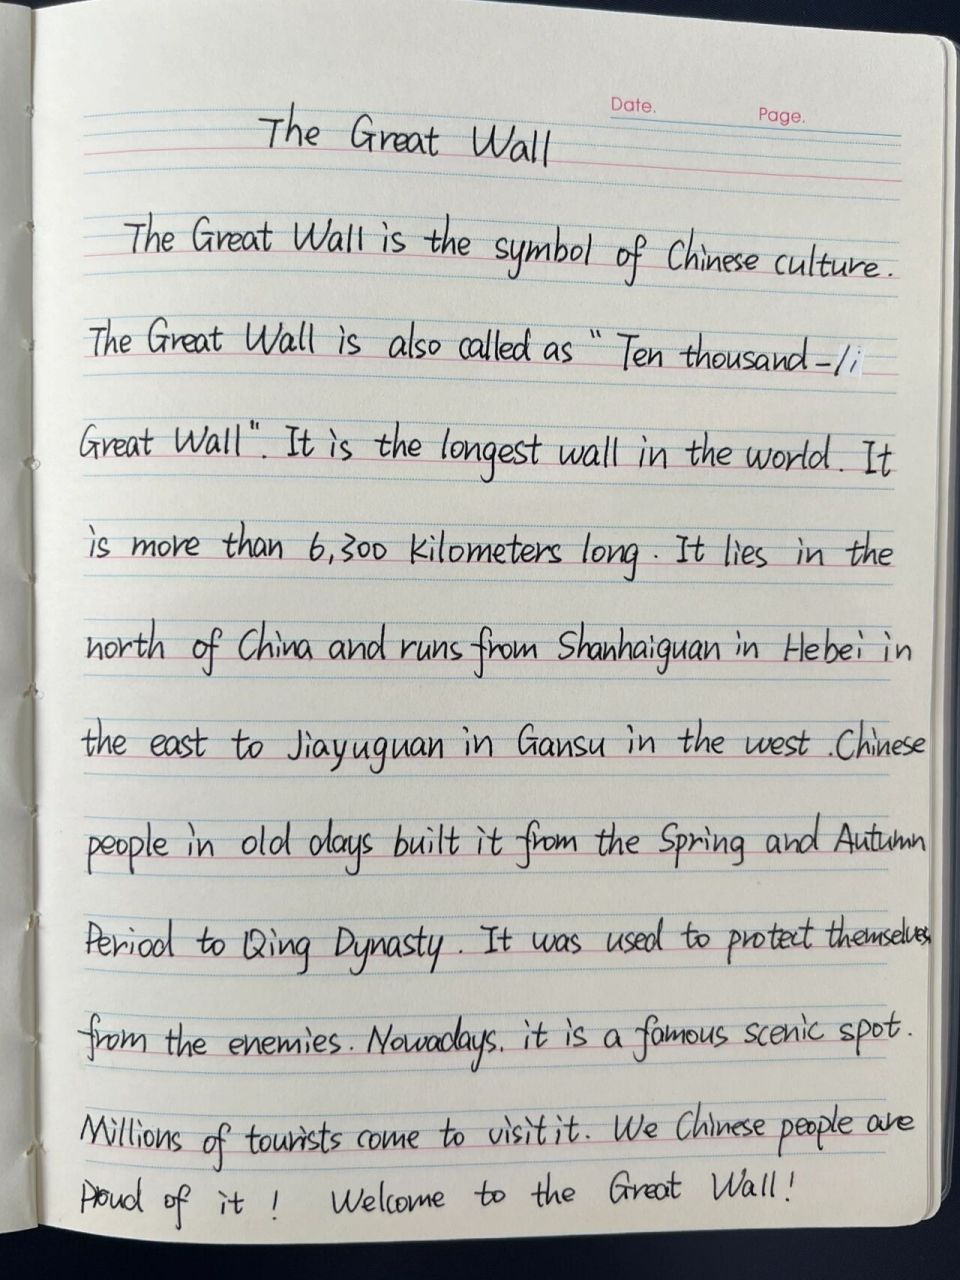 Date. Page.
The Great Wall
The Great Wall is the symbol of Chinese culture.
The Great Wall is also called as " Ten thousand-li
Great Wall". It is the longest wall in the world. It
is more than 6,300 kilometers long. It lies in the
north of China and runs from Shanhaiguan in Hebei in
the east to Jiayuguan in Gansu in the west. Chinese
people in old days built it from the Spring and Autumn
Period to Qing Dynasty. It was used to protect themselves
from the enemies. Nowadays. it is a famous scenic spot.
Millions of tourists come to visit it. We Chinese people are
proud of it! Welcome to the Great Wall!